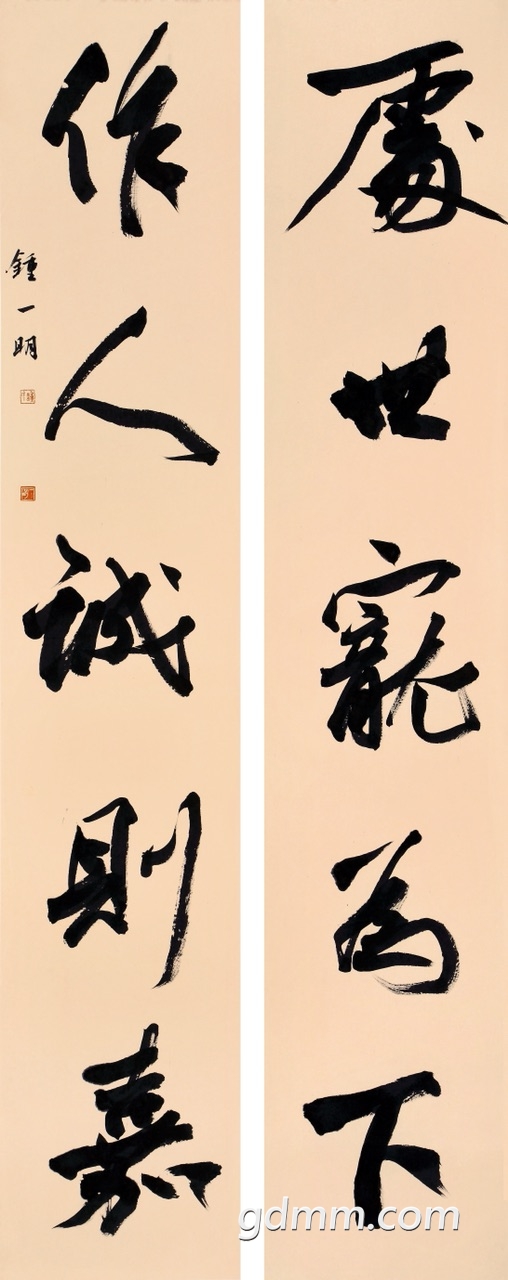 處世寵為下
作人誠則嘉
鍾一明
gdmm.com